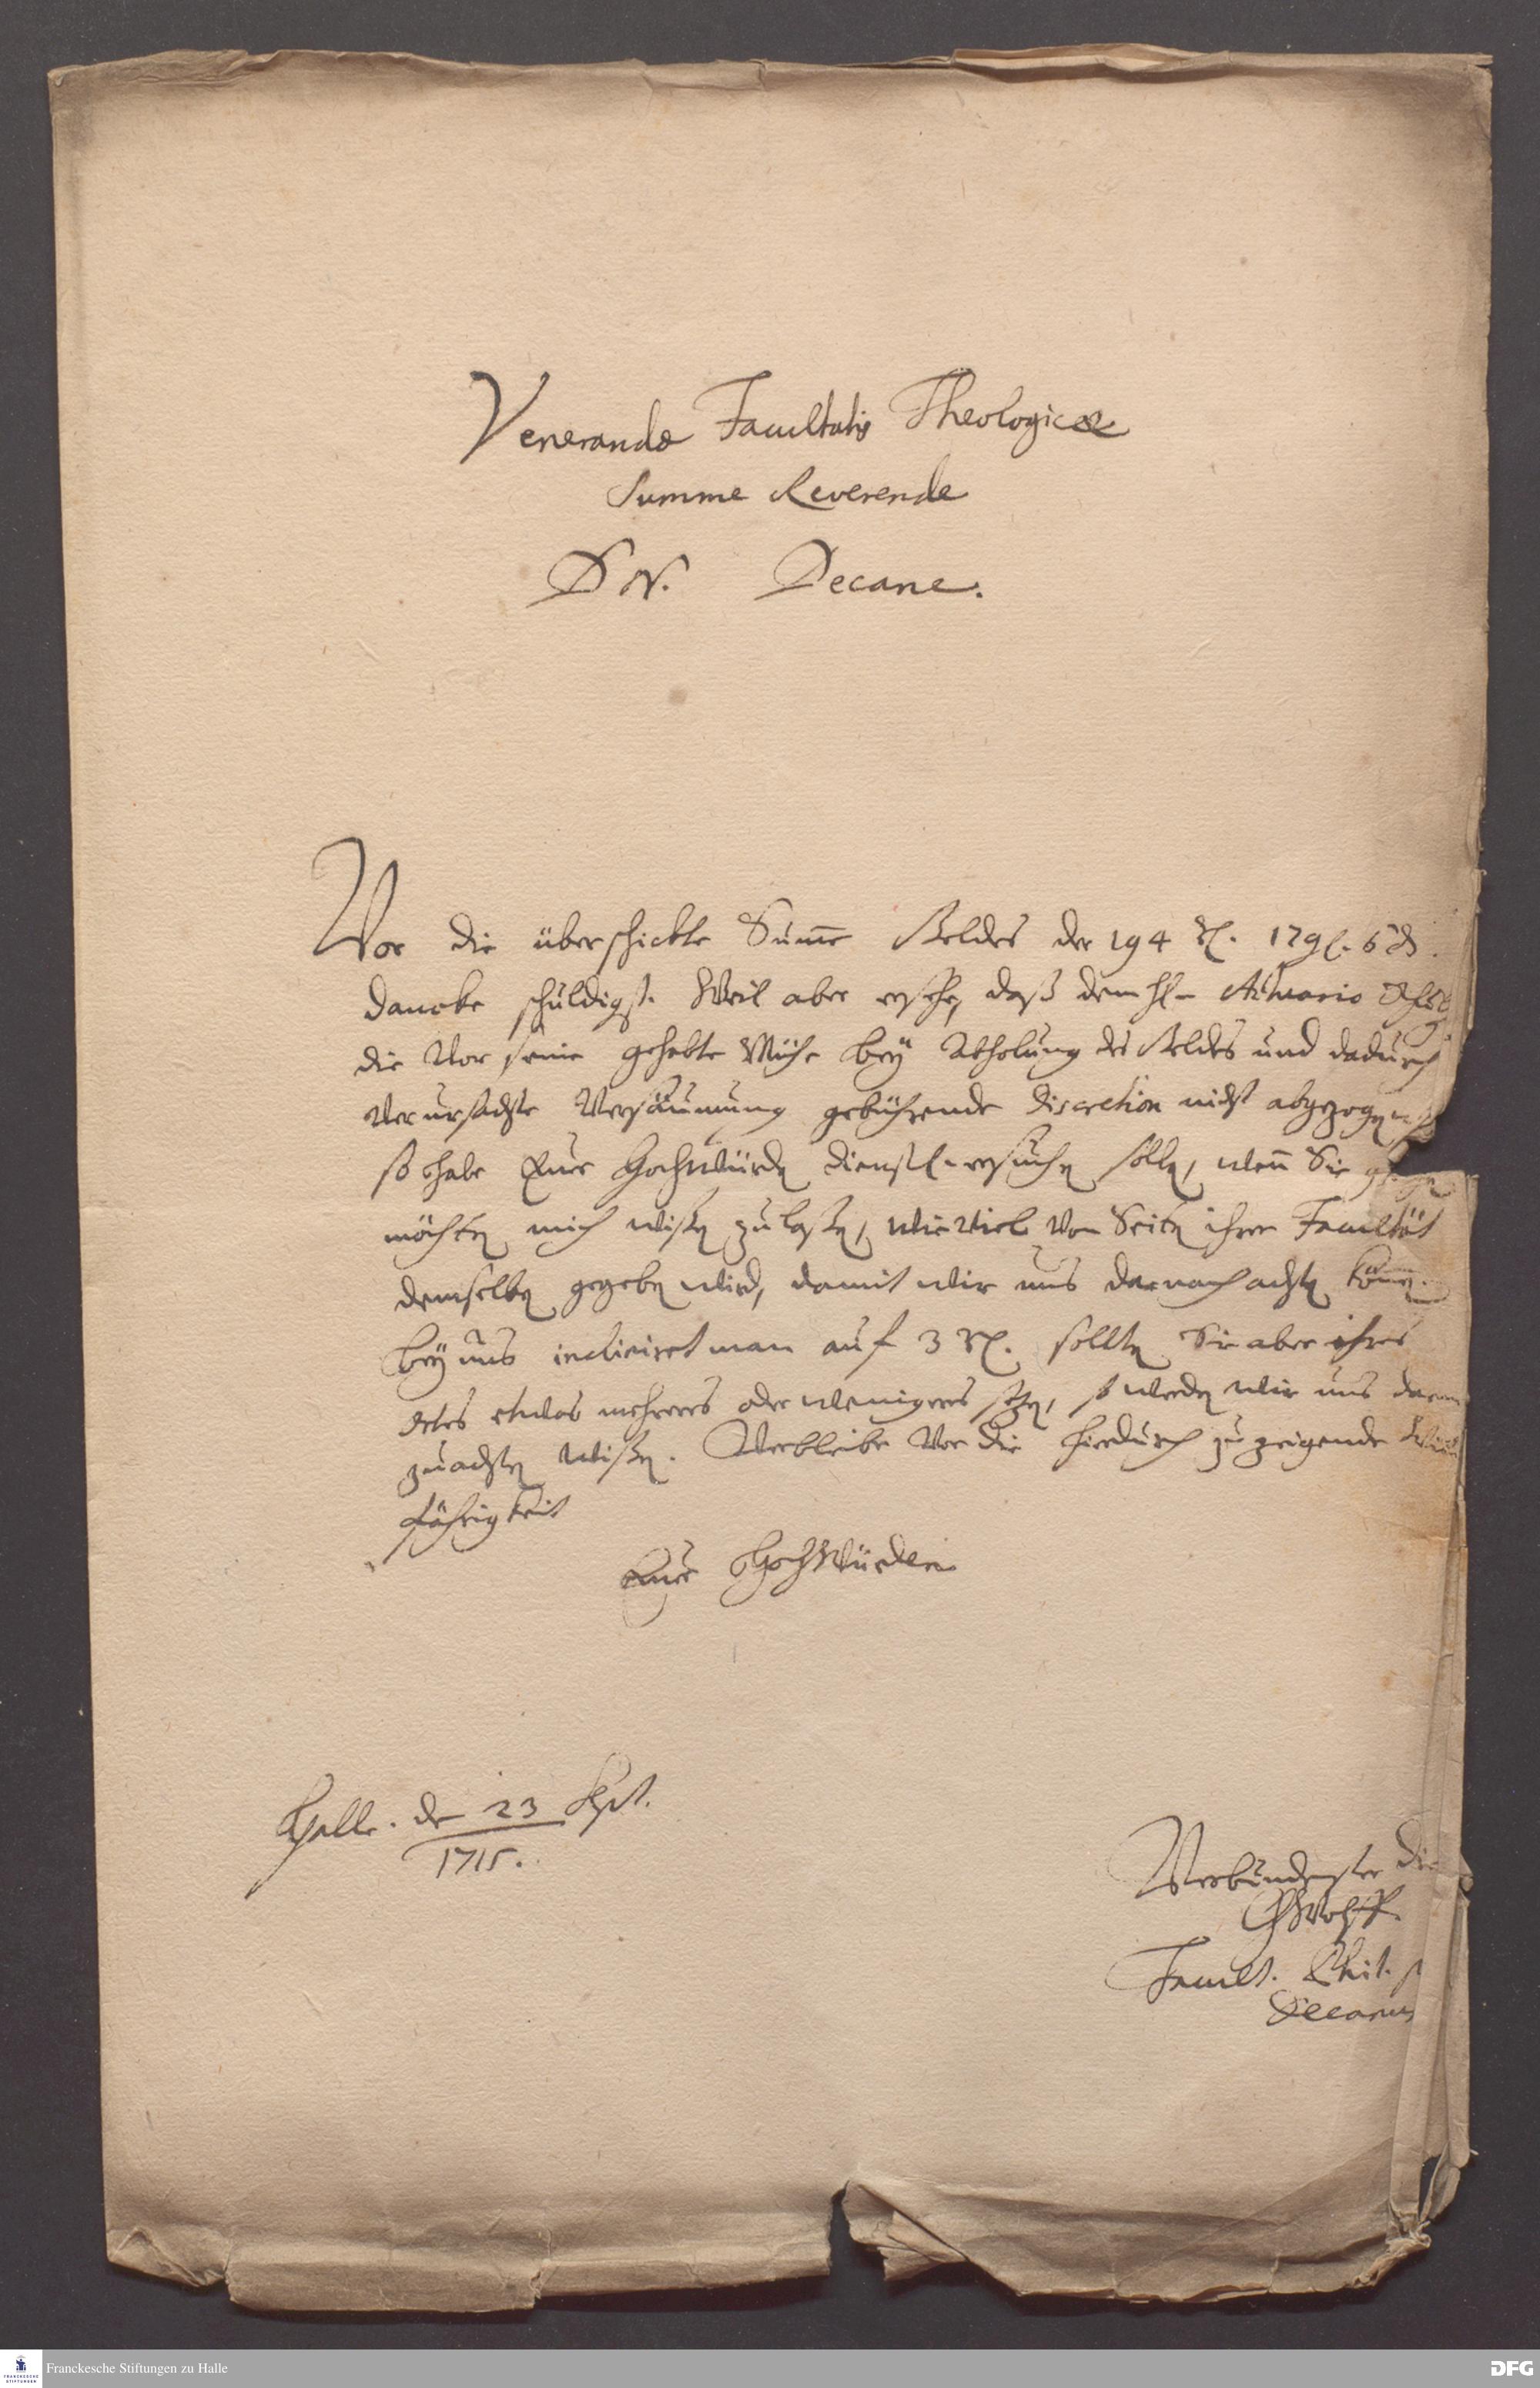 Venerandæ Facultatis Theologicæ
Summe Reverende
Dn. Decane.
Vor die überschickte Summe Geldes der 194 rl. 17 gl. 6 d.
dancke schuldigst. Weil aber ersehe, daß dem H. Actuario
die vor seine gehabte Mühe bey Abholung des Geldes und dadurch
verursachte Versäumung gebührende discretion nicht abgezogen
so habe Euer HochWürden dienstl. ersuchen sollen, wenn Sie
möchten mich wißen zulaßen, wieviel von Seiten ihrer Facultät
demselben gegeben wird, damit wir uns darnach achten können.
bey uns incliniret man auf 3 rl. sollten Sie aber ihres
Ortes etwas mehrers oder wenigers setzen, so werden wir uns darnach
zuachten wißen. Verbleibe vor die hierdurch zuzeigende Will
fährigkeit
Euer HochWürden
Halle. den 23 Sept.
1715.
Verbundenster
CWolff.
Facult. Phil.
Decanus
Franckesche Stiftungen zu Halle
DFG